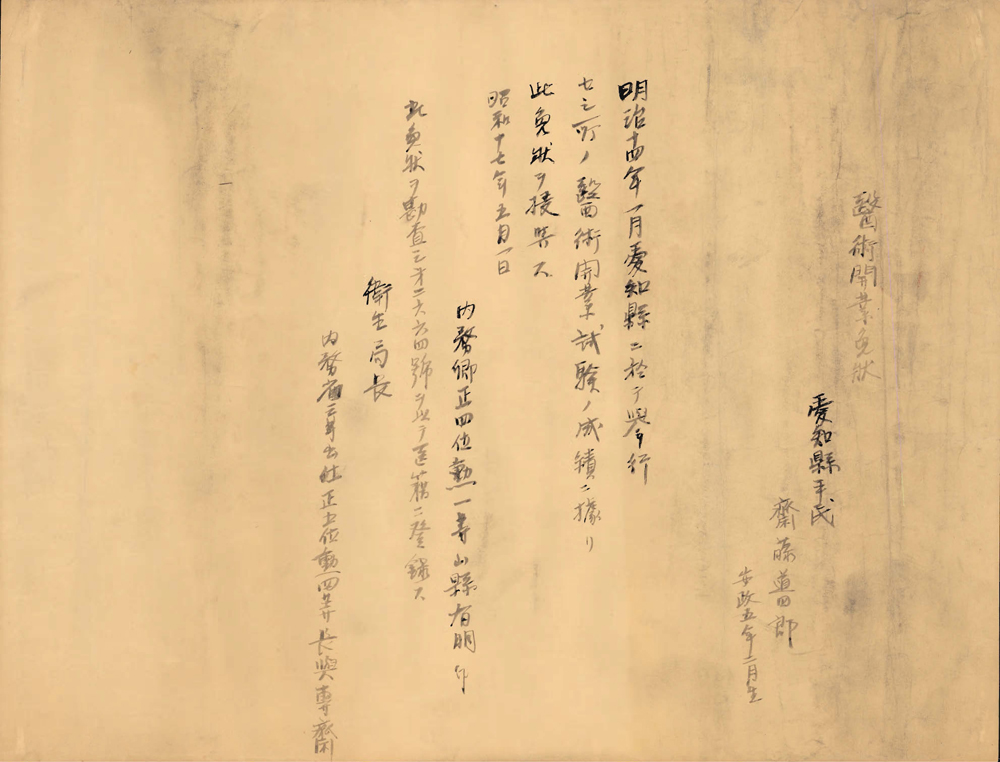 醫術開業免狀
愛知縣平民
齋藤道四郎
安政五年二月生
明治十四年一月愛知縣ニ於テ擧行
セシ所ノ醫術開業試驗ノ成績ニ據リ
此免狀ヲ授與ス
昭和十七年五月一日
内務卿正四位勲一等山縣有朋印
此免狀ヲ勘査シ第二六六四號ヲ以テ医籍ニ登録ス
衛生局長
内務省三等出仕正五位勲四等長與專齋